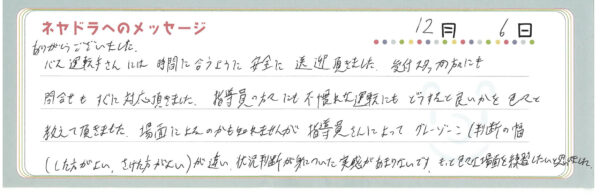 ネヤドラへのメッセージ
12月 6日
ありがとうございました。
バス運転手さんには時間に合うように安全に送迎頂きました。受付スタッフの方にも
問合せもすぐに対応頂きました。指導員の方々にも不慣れな運転にもどうすると良いかを色々と
教えて頂きました。場面によるのかも知れませんが指導員さんによってグレーゾーン(判断の幅
(した方がよい、さけた方がよい)が違い、状況判断が身についた実感があまりないです。もっと色々な場面を練習したいと思いました。